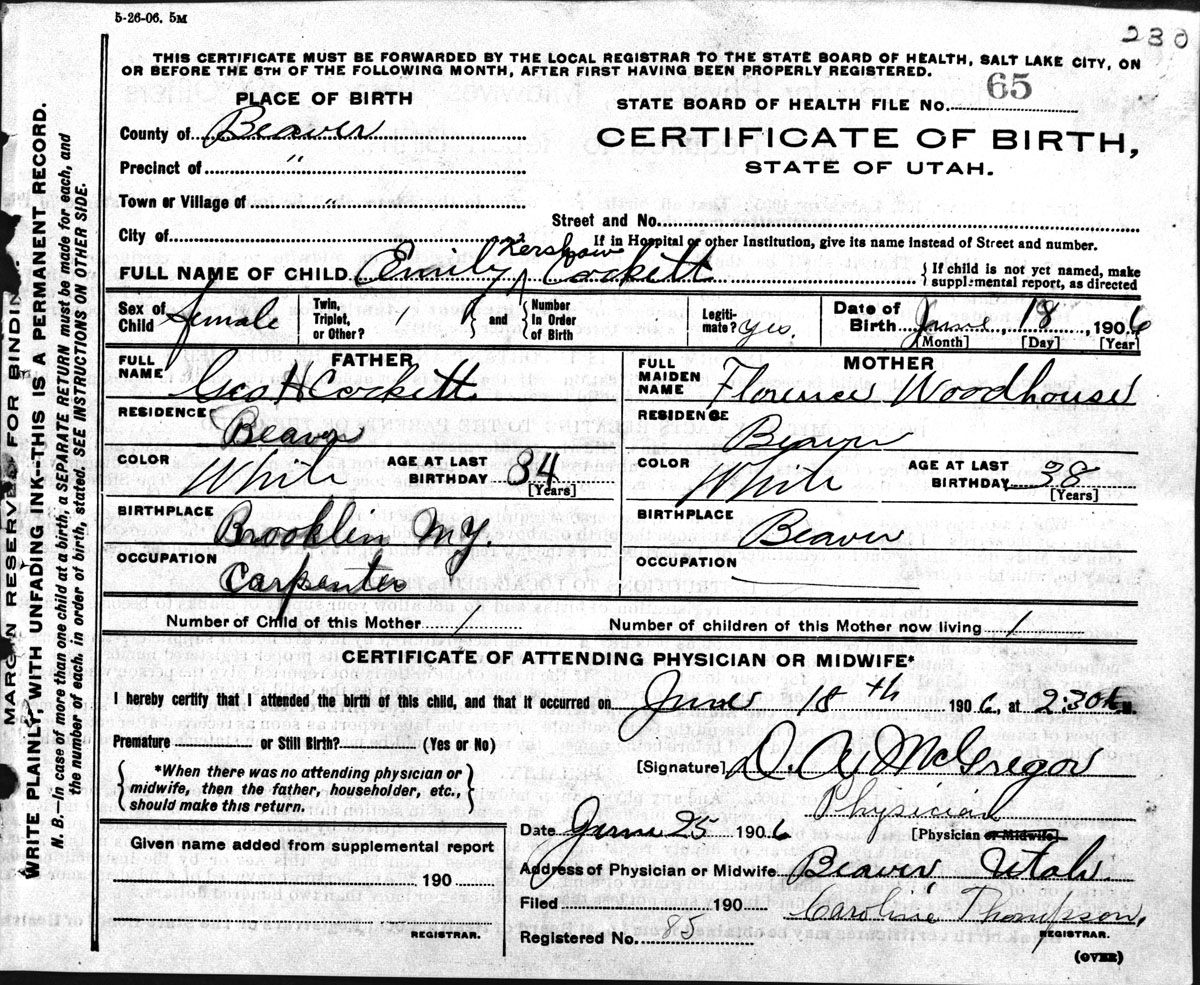 5-26-06. 5M
230
THIS CERTIFICATE MUST BE FORWARDED BY THE LOCAL REGISTRAR TO THE STATE BOARD OF HEALTH, SALT LAKE CITY, ON
OR BEFORE THE 5TH OF THE FOLLOWING MONTH, AFTER FIRST HAVING BEEN PROPERLY REGISTERED.
PLACE OF BIRTH
STATE BOARD OF HEALTH FILE No. 65
County of Beaver
CERTIFICATE OF BIRTH,
STATE OF UTAH.
Precinct of "
Town or Village of "
Street and No.
City of
If in Hospital or other Institution, give its name instead of Street and number.
FULL NAME OF CHILD Emily Kershaw Cockett
{ If child is not yet named, make
supplemental report, as directed
Sex of Child female
Twin, Triplet, or Other? } and { Number in Order of Birth
Legiti-mate? yes
Date of Birth June, 18, 1906
[Month] [Day] [Year]
FATHER
FULL NAME Geo H Cockett
MOTHER
FULL MAIDEN NAME Florence Woodhouse
RESIDENCE Beaver
RESIDENCE Beaver
COLOR White AGE AT LAST BIRTHDAY 34 [Years]
COLOR White AGE AT LAST BIRTHDAY 28 [Years]
BIRTHPLACE Brooklin N.Y.
BIRTHPLACE Beaver
OCCUPATION Carpenter
OCCUPATION
Number of Child of this Mother 1 Number of children of this Mother now living 1
CERTIFICATE OF ATTENDING PHYSICIAN OR MIDWIFE*
I hereby certify that I attended the birth of this child, and that it occurred on June 18th 1906, at 2:30 M.
Premature or Still Birth? (Yes or No)
{ *When there was no attending physician or
midwife, then the father, householder, etc.,
should make this return. }
[Signature] D. A. McGregor
Physician
Date June 25 1906 [Physician or Midwife]
Given name added from supplemental report
190
REGISTRAR.
Address of Physician or Midwife Beaver Utah.
Filed 190 Caroline Thompson,
REGISTRAR.
Registered No. 85
(OVER)
MARGIN RESERVED FOR BINDIN
WRITE PLAINLY, WITH UNFADING INK--THIS IS A PERMANENT RECORD.
N. B.—In case of more than one child at a birth, a SEPARATE RETURN must be made for each, and
the number of each, in order of birth, stated. SEE INSTRUCTIONS ON OTHER SIDE.